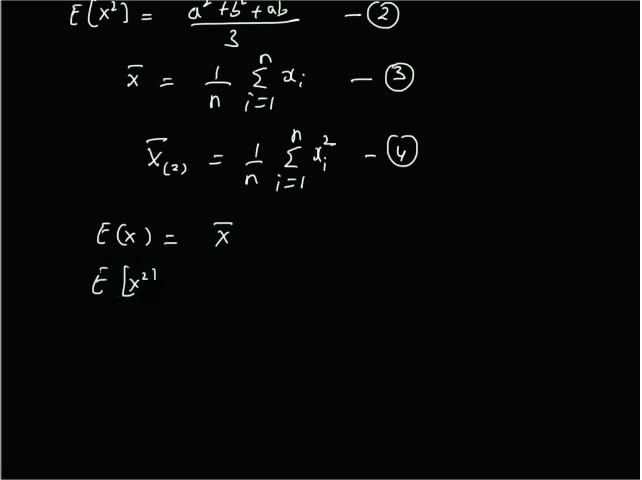 E[x²] = a² + b² + ab / 3 — ②
x̄ = 1/n Σ_{i=1}^{n} xᵢ — ③
x̄₍₂₎ = 1/n Σ_{i=1}^{n} xᵢ² — ④
E(x) = x̄
E [x²]